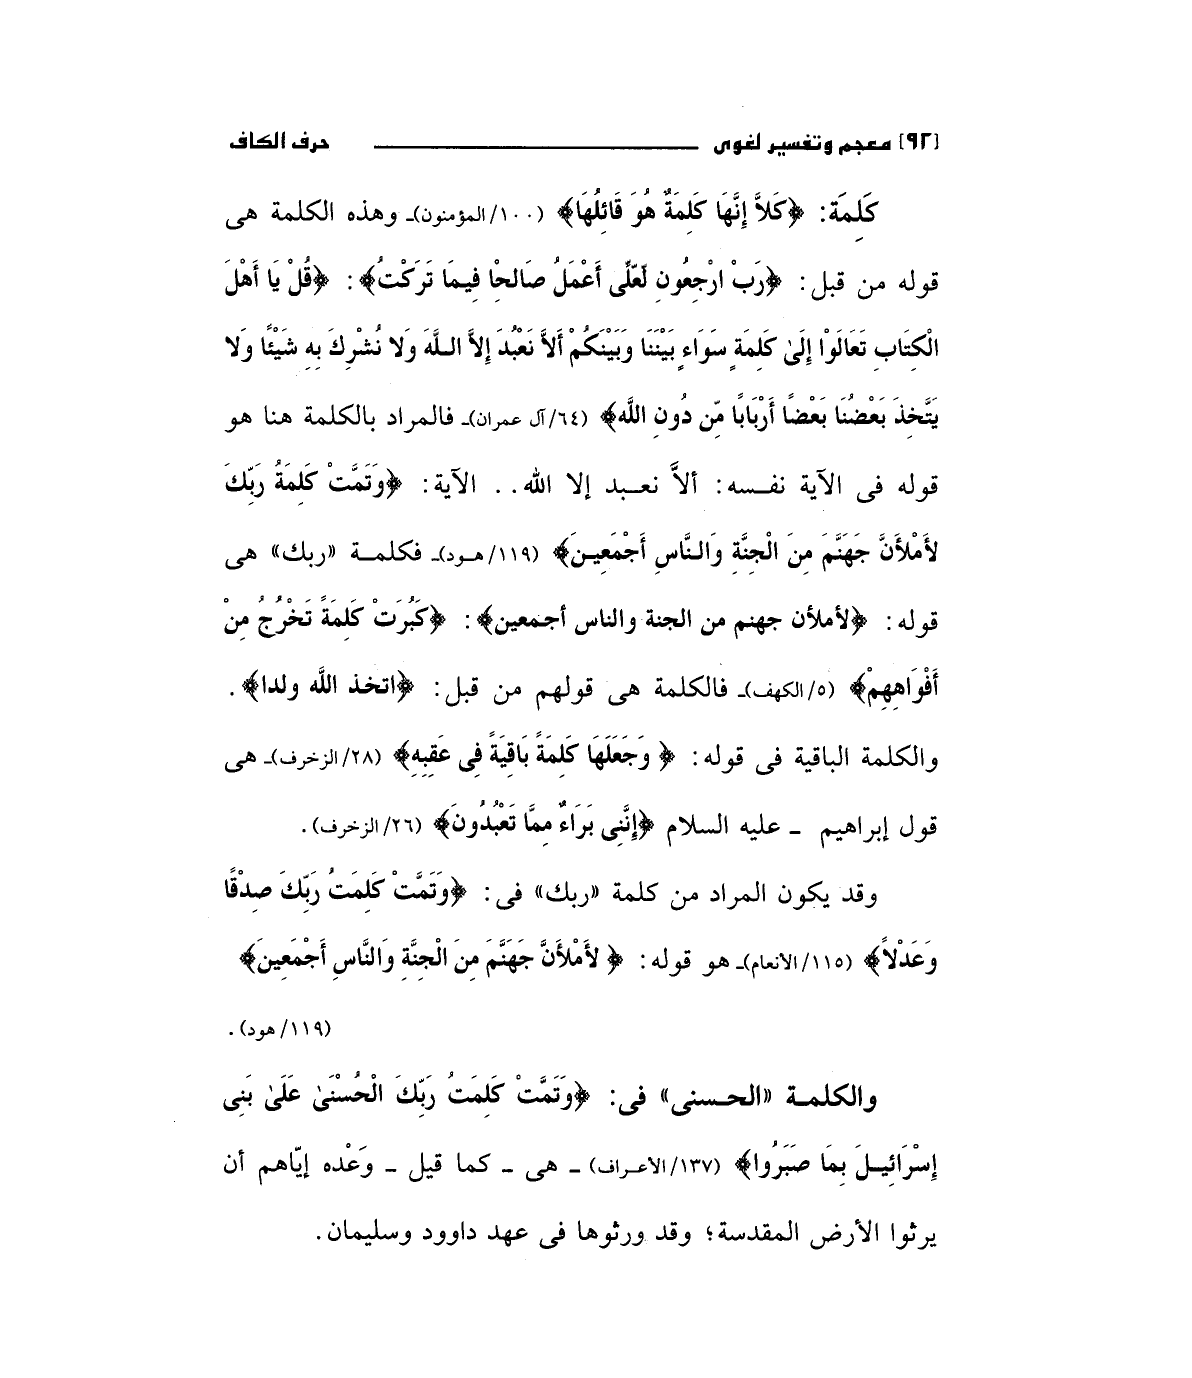 [٩٢] معجم وتفسير لغوى حرف الكاف
كَلِمَة: ﴿كَلاَّ إِنَّهَا كَلِمَةٌ هُوَ قَائِلُهَا﴾ (١٠٠/ المؤمنون)ـ وهذه الكلمة هى
قوله من قبل: ﴿رَبِّ ارْجِعُونِ لَعَلِّى أَعْمَلُ صَالِحًا فِيمَا تَرَكْتُ﴾: ﴿قُلْ يَا أَهْلَ
الْكِتَابِ تَعَالَوْا إِلَىٰ كَلِمَةٍ سَوَاءٍ بَيْنَنَا وَبَيْنَكُمْ أَلاَّ نَعْبُدَ إِلاَّ اللَّهَ وَلا نُشْرِكَ بِهِ شَيْئًا وَلا
يَتَّخِذَ بَعْضُنَا بَعْضًا أَرْبَابًا مِّن دُونِ اللَّهِ﴾ (٦٤/ آل عمران)ـ فالمراد بالكلمة هنا هو
قوله فى الآية نفسه: ألاَّ نعبد إلا الله.. الآية: ﴿وَتَمَّتْ كَلِمَةُ رَبِّكَ
لأَمْلأَنَّ جَهَنَّمَ مِنَ الْجِنَّةِ وَالنَّاسِ أَجْمَعِينَ﴾ (١١٩/ هود)ـ فكلمة «ربك» هى
قوله: ﴿لأملأن جهنم من الجنة والناس أجمعين﴾: ﴿كَبُرَتْ كَلِمَةً تَخْرُجُ مِنْ
أَفْوَاهِهِمْ﴾ (٥/ الكهف)ـ فالكلمة هى قولهم من قبل: ﴿اتخذ اللَّه ولدا﴾.
والكلمة الباقية فى قوله: ﴿ وَجَعَلَهَا كَلِمَةً بَاقِيَةً فِى عَقِبِهِ﴾ (٢٨/ الزخرف)ـ هى
قول إبراهيم ـ عليه السلام ﴿إِنَّنِى بَرَاءٌ مِمَّا تَعْبُدُونَ﴾ (٢٦/ الزخرف).
وقد يكون المراد من كلمة «ربك» فى: ﴿وَتَمَّتْ كَلِمَتُ رَبِّكَ صِدْقًا
وَعَدْلاً﴾ (١١٥/ الانعام)ـ هو قوله: ﴿ لأَمْلأَنَّ جَهَنَّمَ مِنَ الْجِنَّةِ وَالنَّاسِ أَجْمَعِينَ﴾
(١١٩/ هود).
والكلمة «الحسنى» فى: ﴿وَتَمَّتْ كَلِمَتُ رَبِّكَ الْحُسْنَىٰ عَلَىٰ بَنِى
إِسْرَائِيلَ بِمَا صَبَرُوا﴾ (١٣٧/ الاعراف) ـ هى ـ كما قيل ـ وَعْده إيّاهم أن
يرثوا الأرض المقدسة؛ وقد ورثوها فى عهد داوود وسليمان.